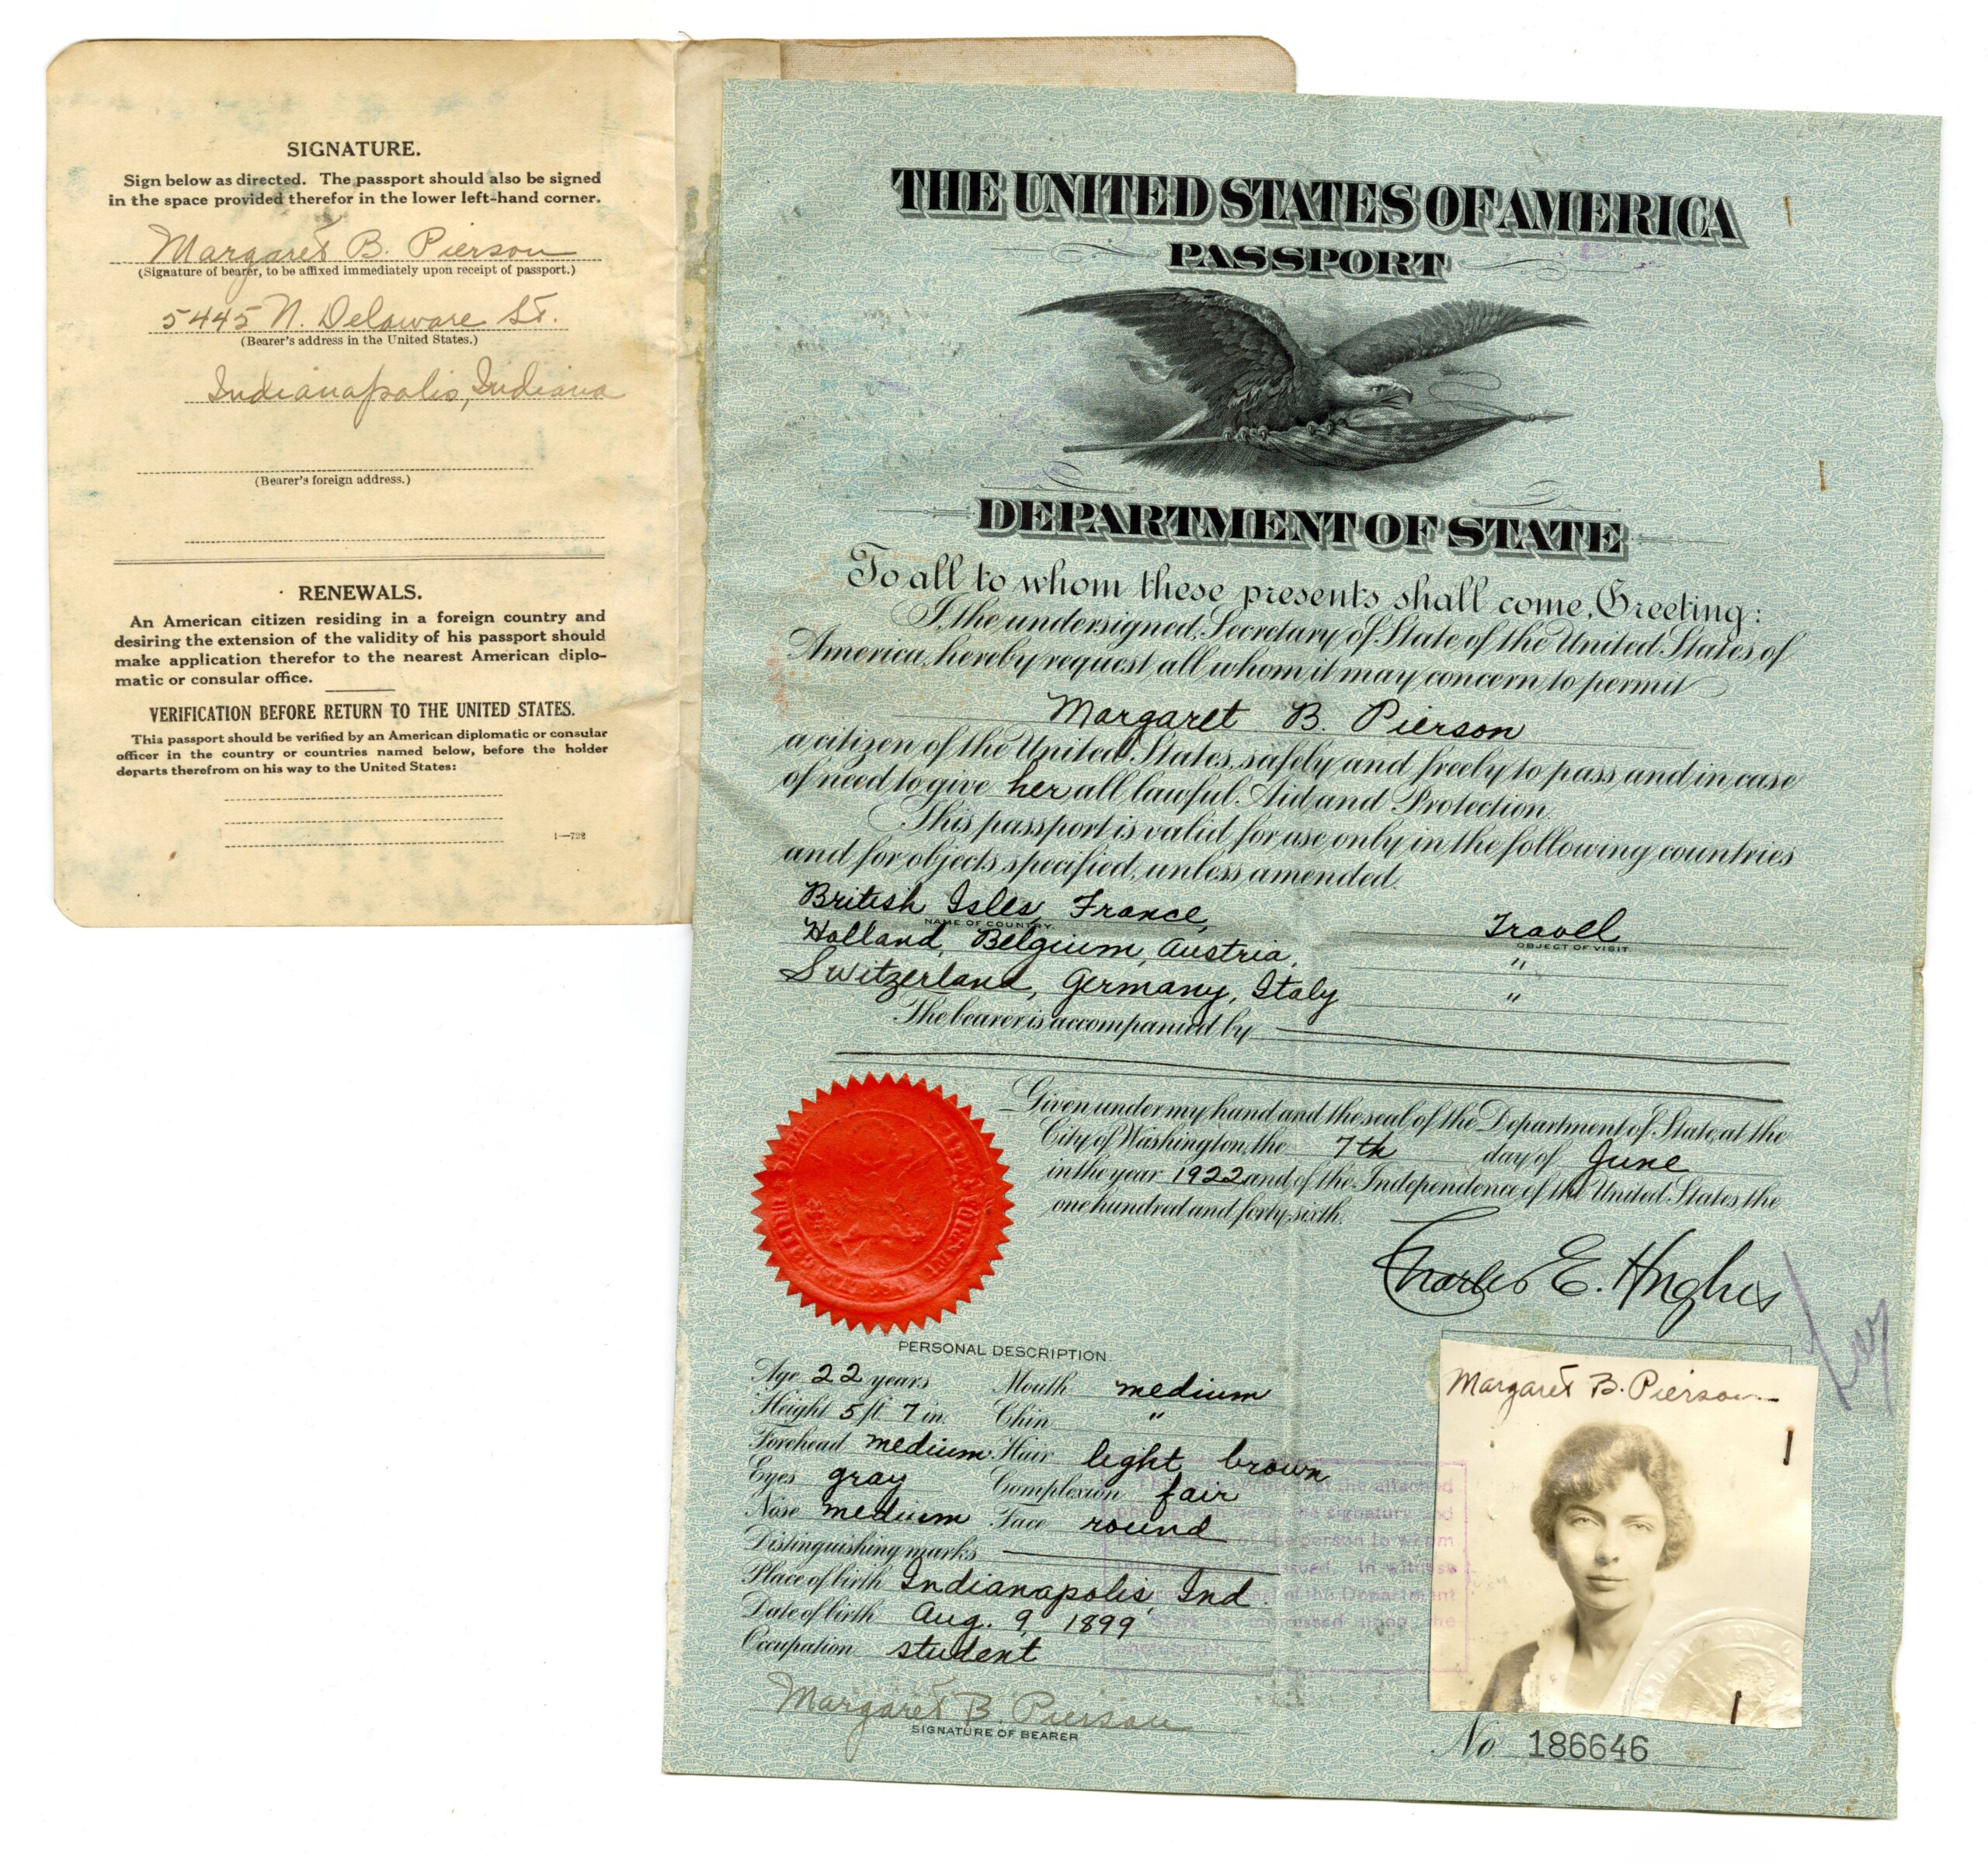 SIGNATURE.
Sign below as directed. The passport should also be signed
in the space provided therefor in the lower left-hand corner.
Margaret B. Pierson
(Signature of bearer, to be affixed immediately upon receipt of passport.)
5445 N. Delaware St.
(Bearer's address in the United States.)
Indianapolis, Indiana
(Bearer's foreign address.)
RENEWALS.
An American citizen residing in a foreign country and
desiring the extension of the validity of his passport should
make application therefor to the nearest American diplo-
matic or consular office.
VERIFICATION BEFORE RETURN TO THE UNITED STATES.
This passport should be verified by an American diplomatic or consular
officer in the country or countries named below, before the holder
departs therefrom on his way to the United States:
1—722
THE UNITED STATES OF AMERICA
PASSPORT
DEPARTMENT OF STATE
To all to whom these presents shall come, Greeting:
I, the undersigned, Secretary of State of the United States of
America, hereby request all whom it may concern to permit
Margaret B. Pierson
a citizen of the United States, safely and freely to pass and in case
of need to give her all lawful Aid and Protection.
This passport is valid for use only in the following countries
and for objects specified, unless amended.
British Isles, France,
NAME OF COUNTRY.
Travel
OBJECT OF VISIT.
Holland, Belgium, Austria, "
Switzerland, Germany, Italy "
The bearer is accompanied by
Given under my hand and the seal of the Department of State, at the
City of Washington, the 7th day of June
in the year 1922 and of the Independence of the United States the
one hundred and forty-sixth.
Charles E. Hughes
PERSONAL DESCRIPTION.
Age 22 years Mouth medium
Height 5 ft. 7 in. Chin "
Forehead medium Hair light brown
Eyes gray Complexion fair
Nose medium Face round
Distinguishing marks
Place of birth Indianapolis, Ind.
Date of birth Aug. 9, 1899
Occupation student
Margaret B. Pierson
SIGNATURE OF BEARER
the attached
signature and
person to whom
issued. In witness
of the Department
is impressed upon the
photograph.
Margaret B. Pierson
No 186646